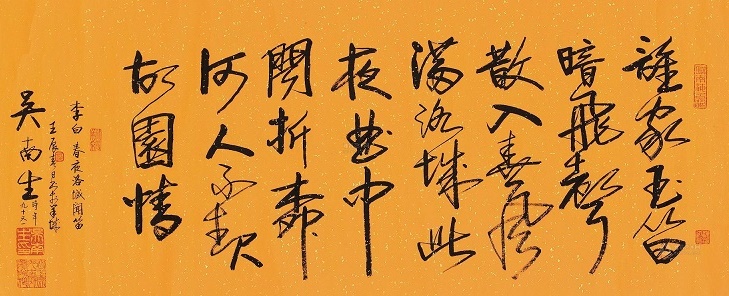 誰家玉笛
暗飛聲
散入春風
滿洛城此
夜曲中
聞折柳
何人不起
故園情
李白 春夜洛城聞笛
壬辰春日書於羊城
吴南生